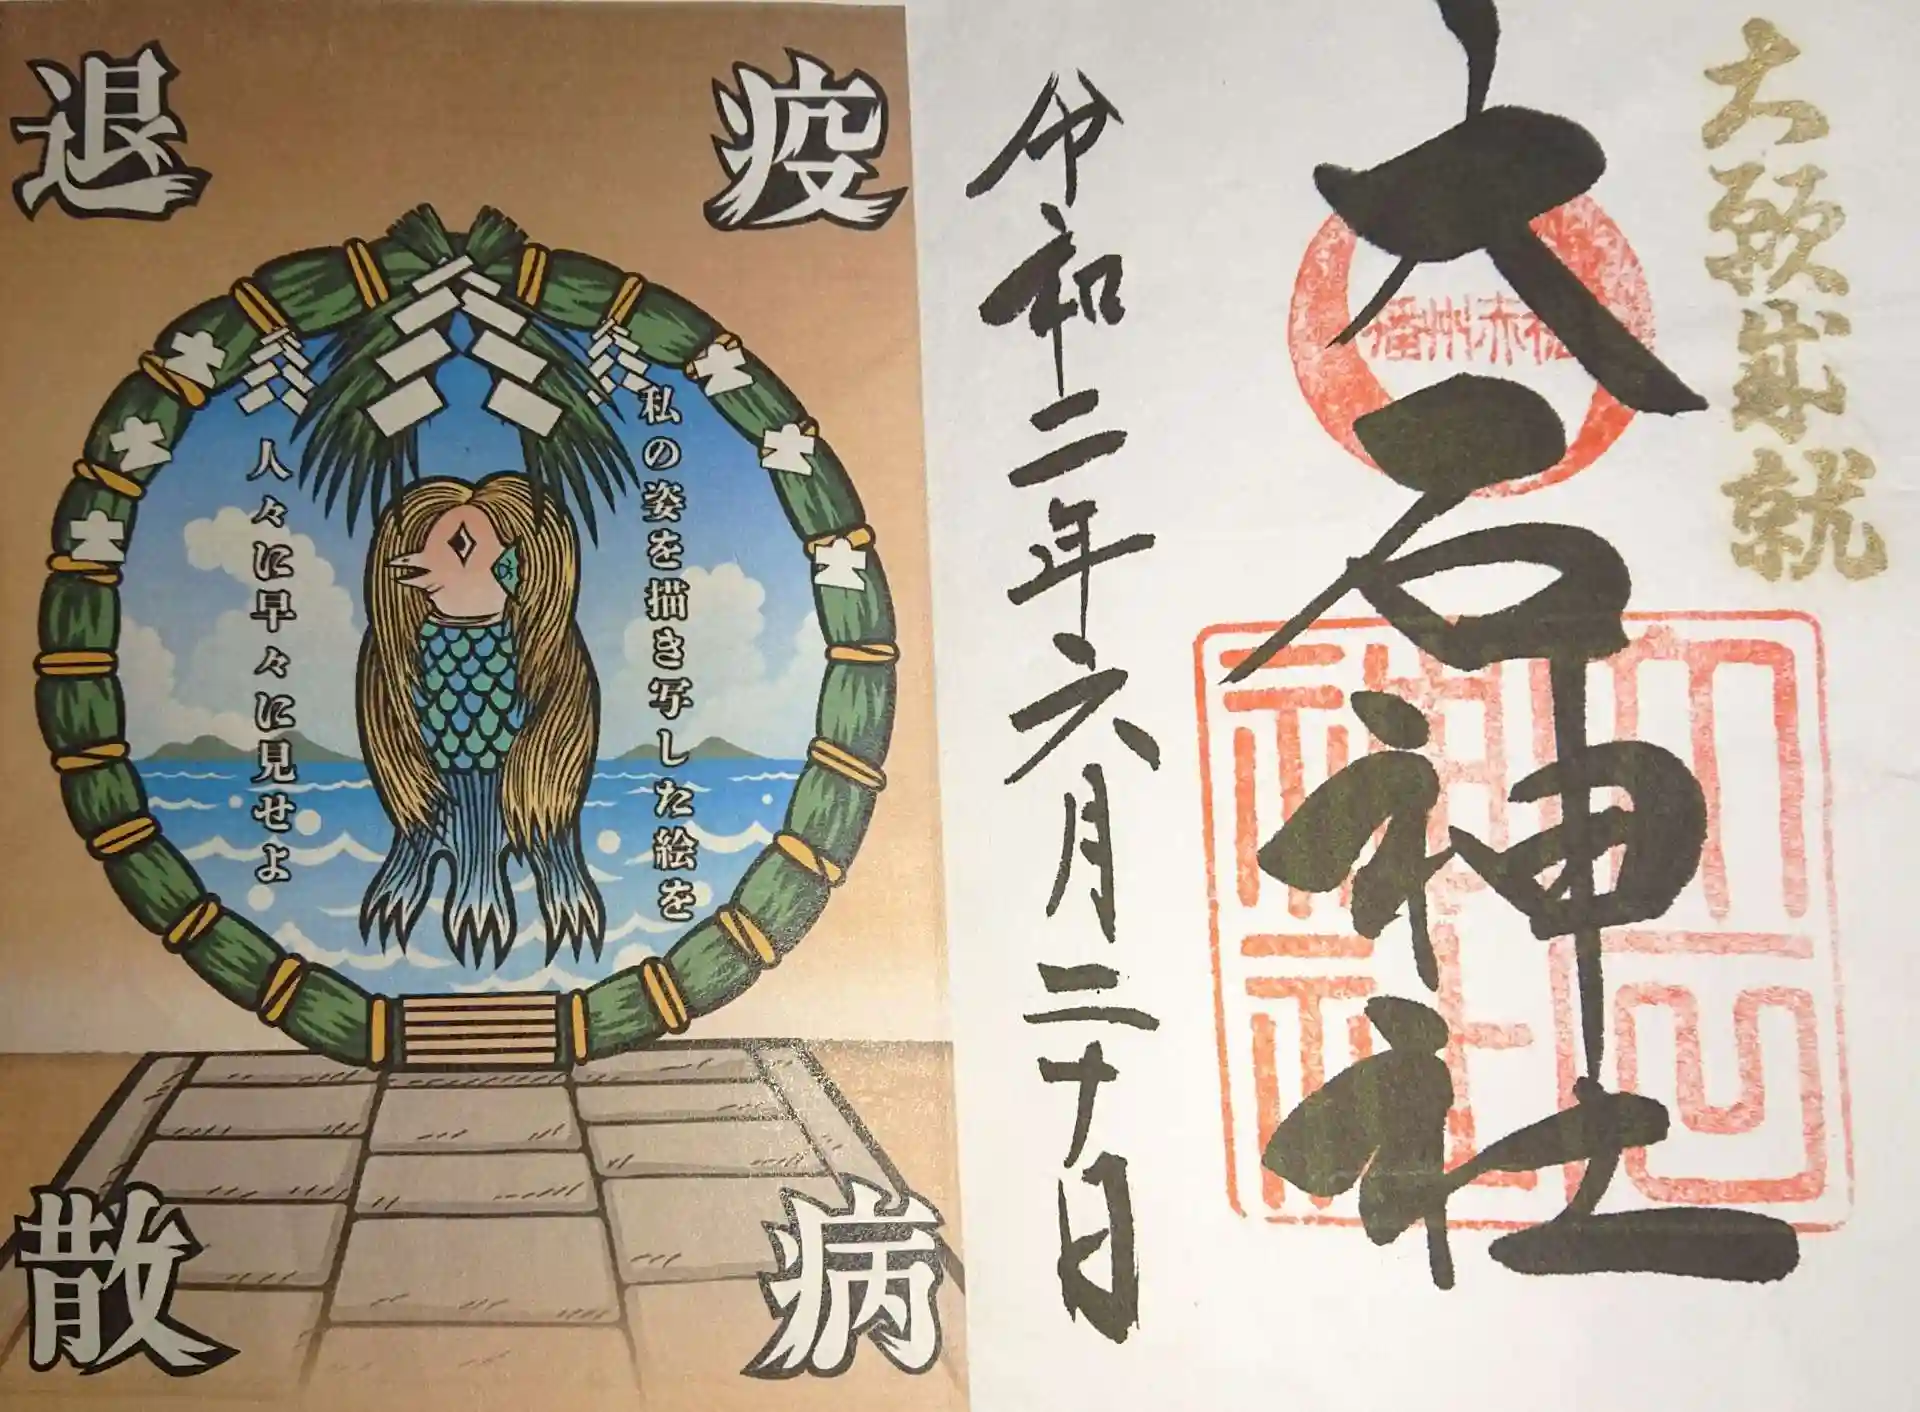 大願成就
大石神社
播州赤穂
大石神社
令和二年六月三十日
疫病
退散
私の姿を描き写した絵を
人々に早々に見せよ